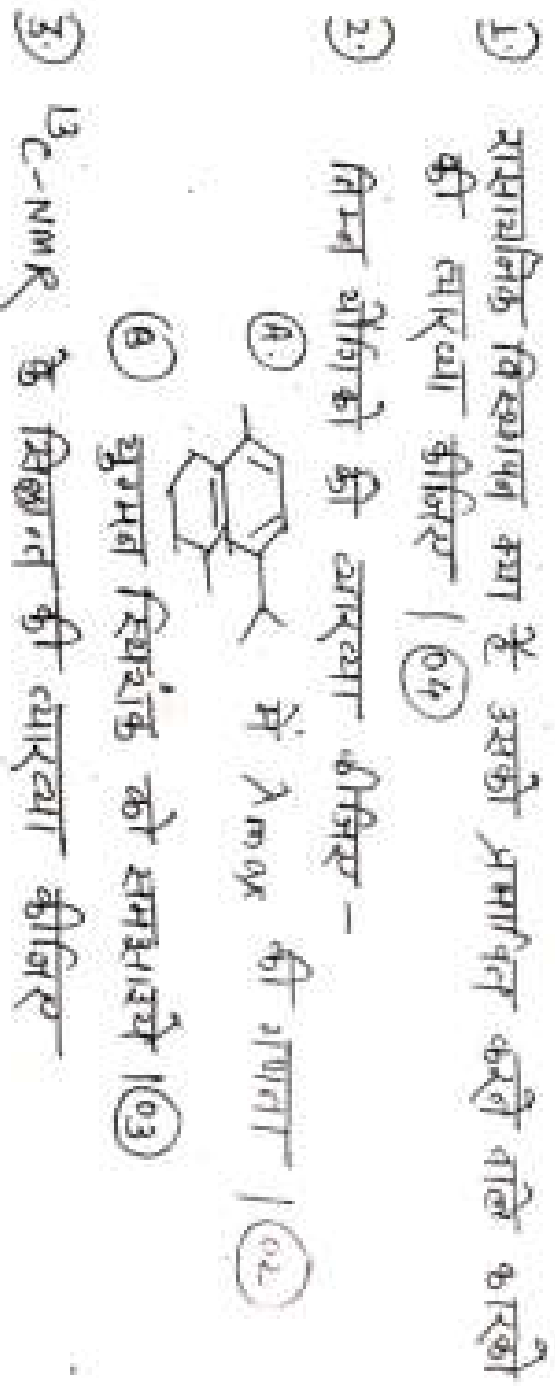 1. रासायनिक विस्थापन क्या है उसको प्रभावित करने वाले कारकों
की व्याख्या कीजिए । 04
2. निम्न यौगिकों की व्याख्या कीजिए -
A. में λmax की गणना । 02
B युग्मन स्थिरांक को समझाइये । 03
3. 13C-NMR के सिद्धान्त की व्याख्या कीजिए